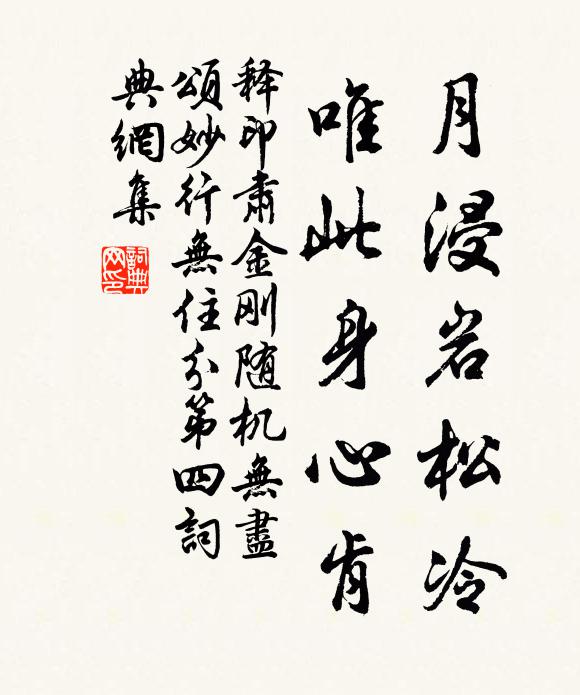 月浸岩松冷
唯此身心肯
释印肃金刚随机無盡
頌妙行無住分第四詞
典網集
詞典
网印